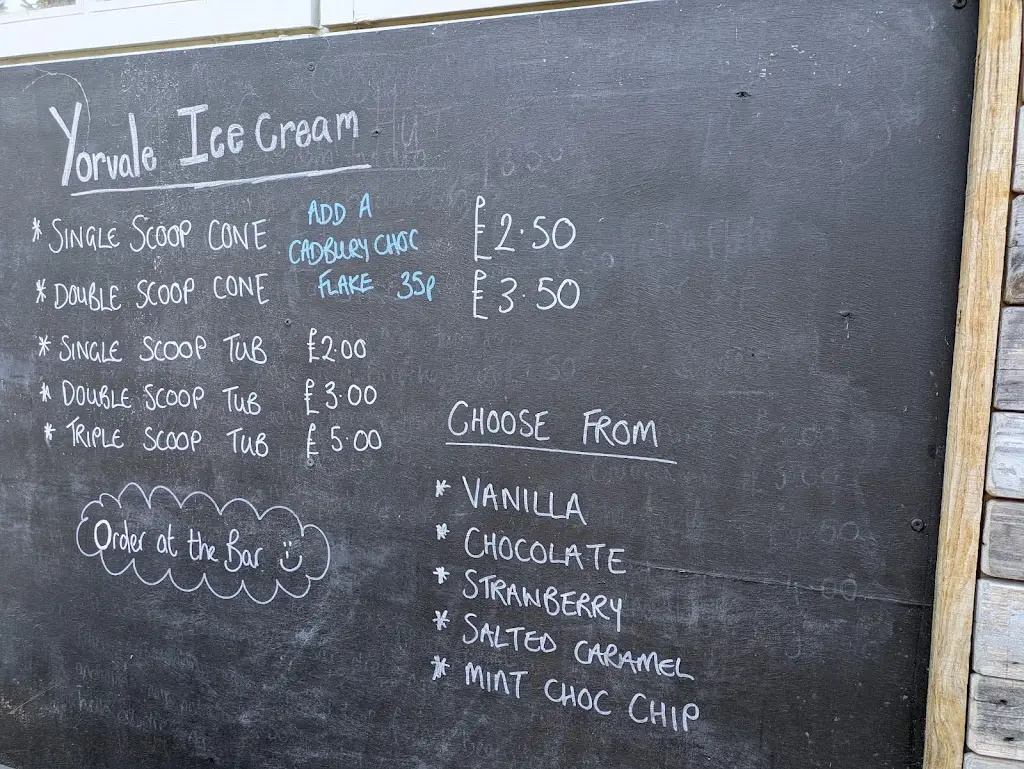 Yorvale Ice Cream
* SINGLE SCOOP CONE £2.50
* DOUBLE SCOOP CONE £3.50
ADD A
CADBURY CHOC
FLAKE 35p
* SINGLE SCOOP TUB £2.00
* DOUBLE SCOOP TUB £3.00
* TRIPLE SCOOP TUB £5.00
Order at the Bar
CHOOSE FROM
* VANILLA
* CHOCOLATE
* STRANBERRY
* SALTED CARAMEL
* MINT CHOC CHIP